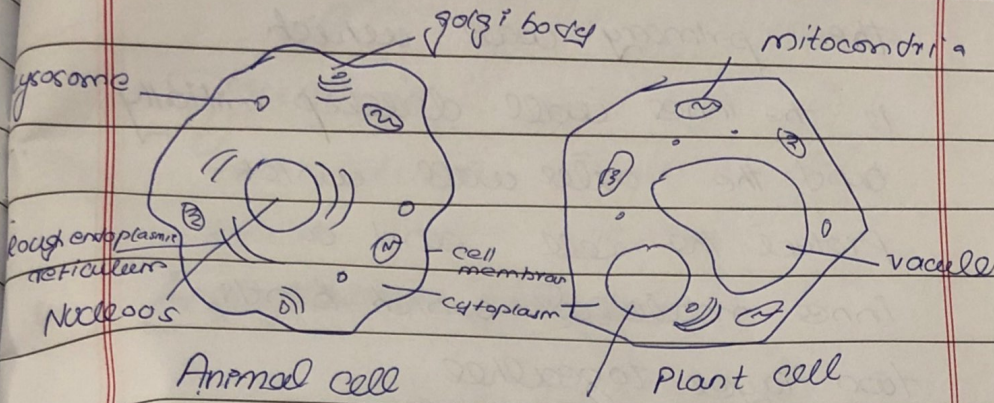 golgi body
mitocondria
lysosome
rough endoplasmic
reticulum
Nucleoos
cell
membran
cytoplasm
vacule
Animal cell
Plant cell